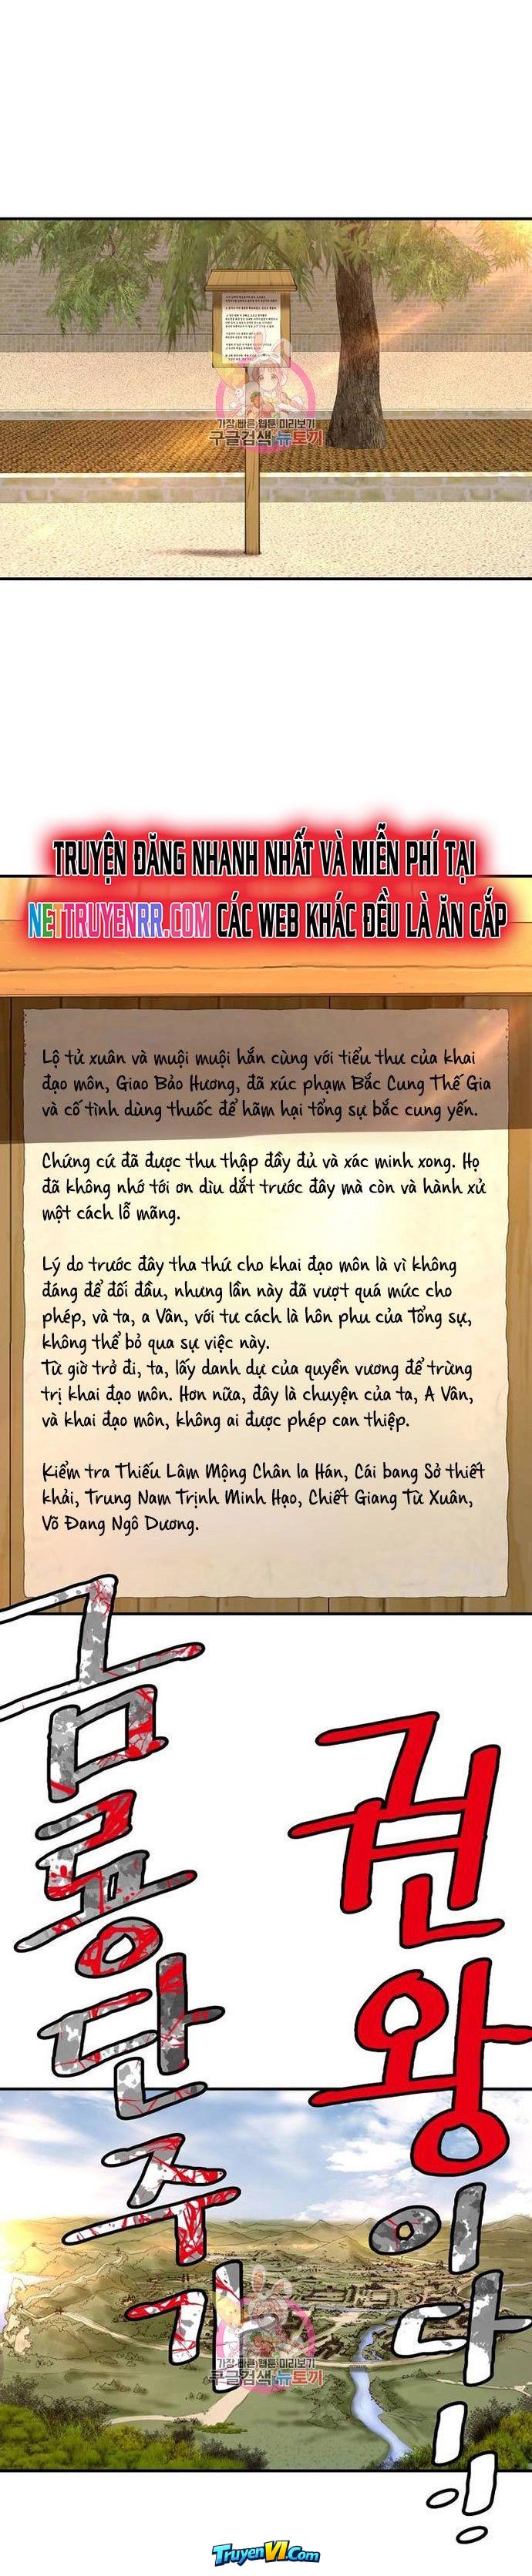 가장 빠른 웹툰 미리보기
구글검색 뉴토끼
TRUYỆN ĐĂNG NHANH NHẤT VÀ MIỄN PHÍ TẠI
NETTRUYENRR.COM CÁC WEB KHÁC ĐỀU LÀ ĂN CẮP
Lộ tử xuân và muội muội hắn cùng với tiểu thư của khai
đạo môn, Giao Bảo Hương, đã xúc phạm Bắc Cung Thế Gia
và cố tình dùng thuốc để hãm hại tổng sự bắc cung yến.
Chứng cứ đã được thu thập đầy đủ và xác minh xong. Họ
đã không nhớ tới ơn dìu dắt trước đây mà còn và hành xử
một cách lỗ mãng.
Lý do trước đây tha thứ cho khai đạo môn là vì không
đáng để đối đầu, nhưng lần này đã vượt quá mức cho
phép, và ta, a Vân, với tư cách là hôn phu của Tổng sự,
không thể bỏ qua sự việc này.
Từ giờ trở đi, ta, lấy danh dự của quyền vương để trừng
trị khai đạo môn. Hơn nữa, đây là chuyện của ta, A Vân,
và khai đạo môn, không ai được phép can thiệp.
Kiểm tra Thiếu Lâm Mộng Chân la Hán, Cái bang Sở thiết
khải, Trung Nam Trịnh Minh Hạo, Chiết Giang Từ Xuân,
Võ Đang Ngô Dương.
권왕이다!!
금룡단주가
가장 빠른 웹툰 미리보기
구글검색 뉴토끼
TruyenVI.Com